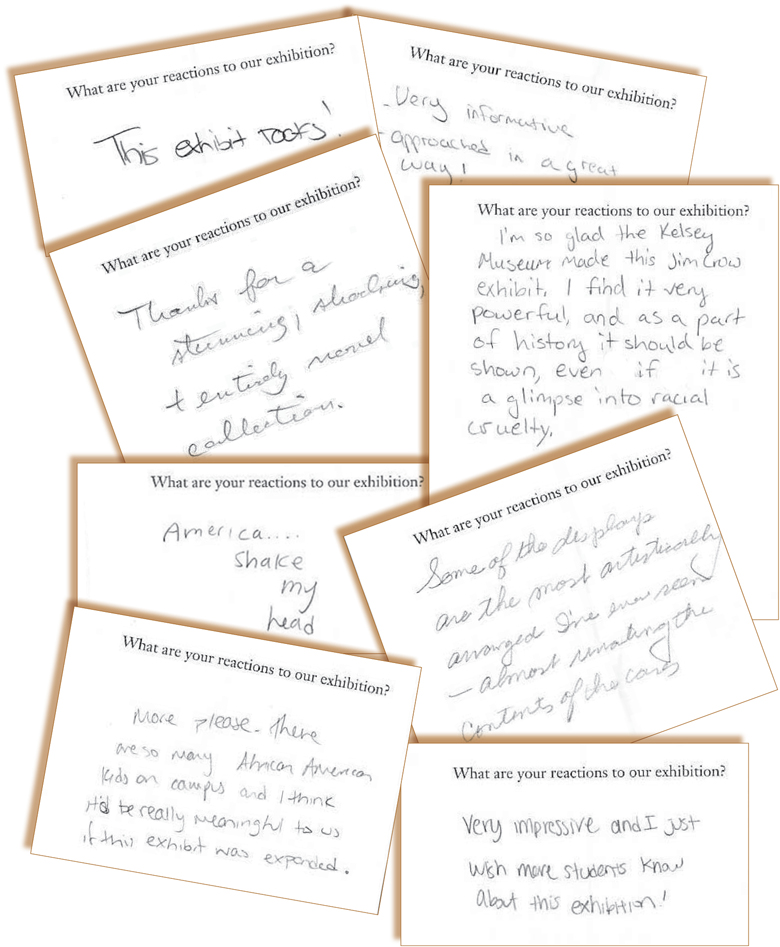 What are your reactions to our exhibition?
This exhibit rocks!
What are your reactions to our exhibition?
- Very informative
- approached in a great
way!
What are your reactions to our exhibition?
Thanks for a
stunning, shocking,
+ entirely novel
collection.
What are your reactions to our exhibition?
I'm so glad the Kelsey
Museum made this Jim Crow
exhibit. I find it very
powerful, and as a part
of history it should be
shown, even if it is
a glimpse into racial
cruelty.
What are your reactions to our exhibition?
America....
shake
my
head
What are your reactions to our exhibition?
Some of the displays
are the most artistically
arranged I've ever seen
— almost rivating the
contents of the cases
What are your reactions to our exhibition?
More please. There
are so many African American
kids on campus and I think
it'd be really meaningful to us
if this exhibit was expanded.
What are your reactions to our exhibition?
Very impressive and I just
wish more students know
about this exhibition!